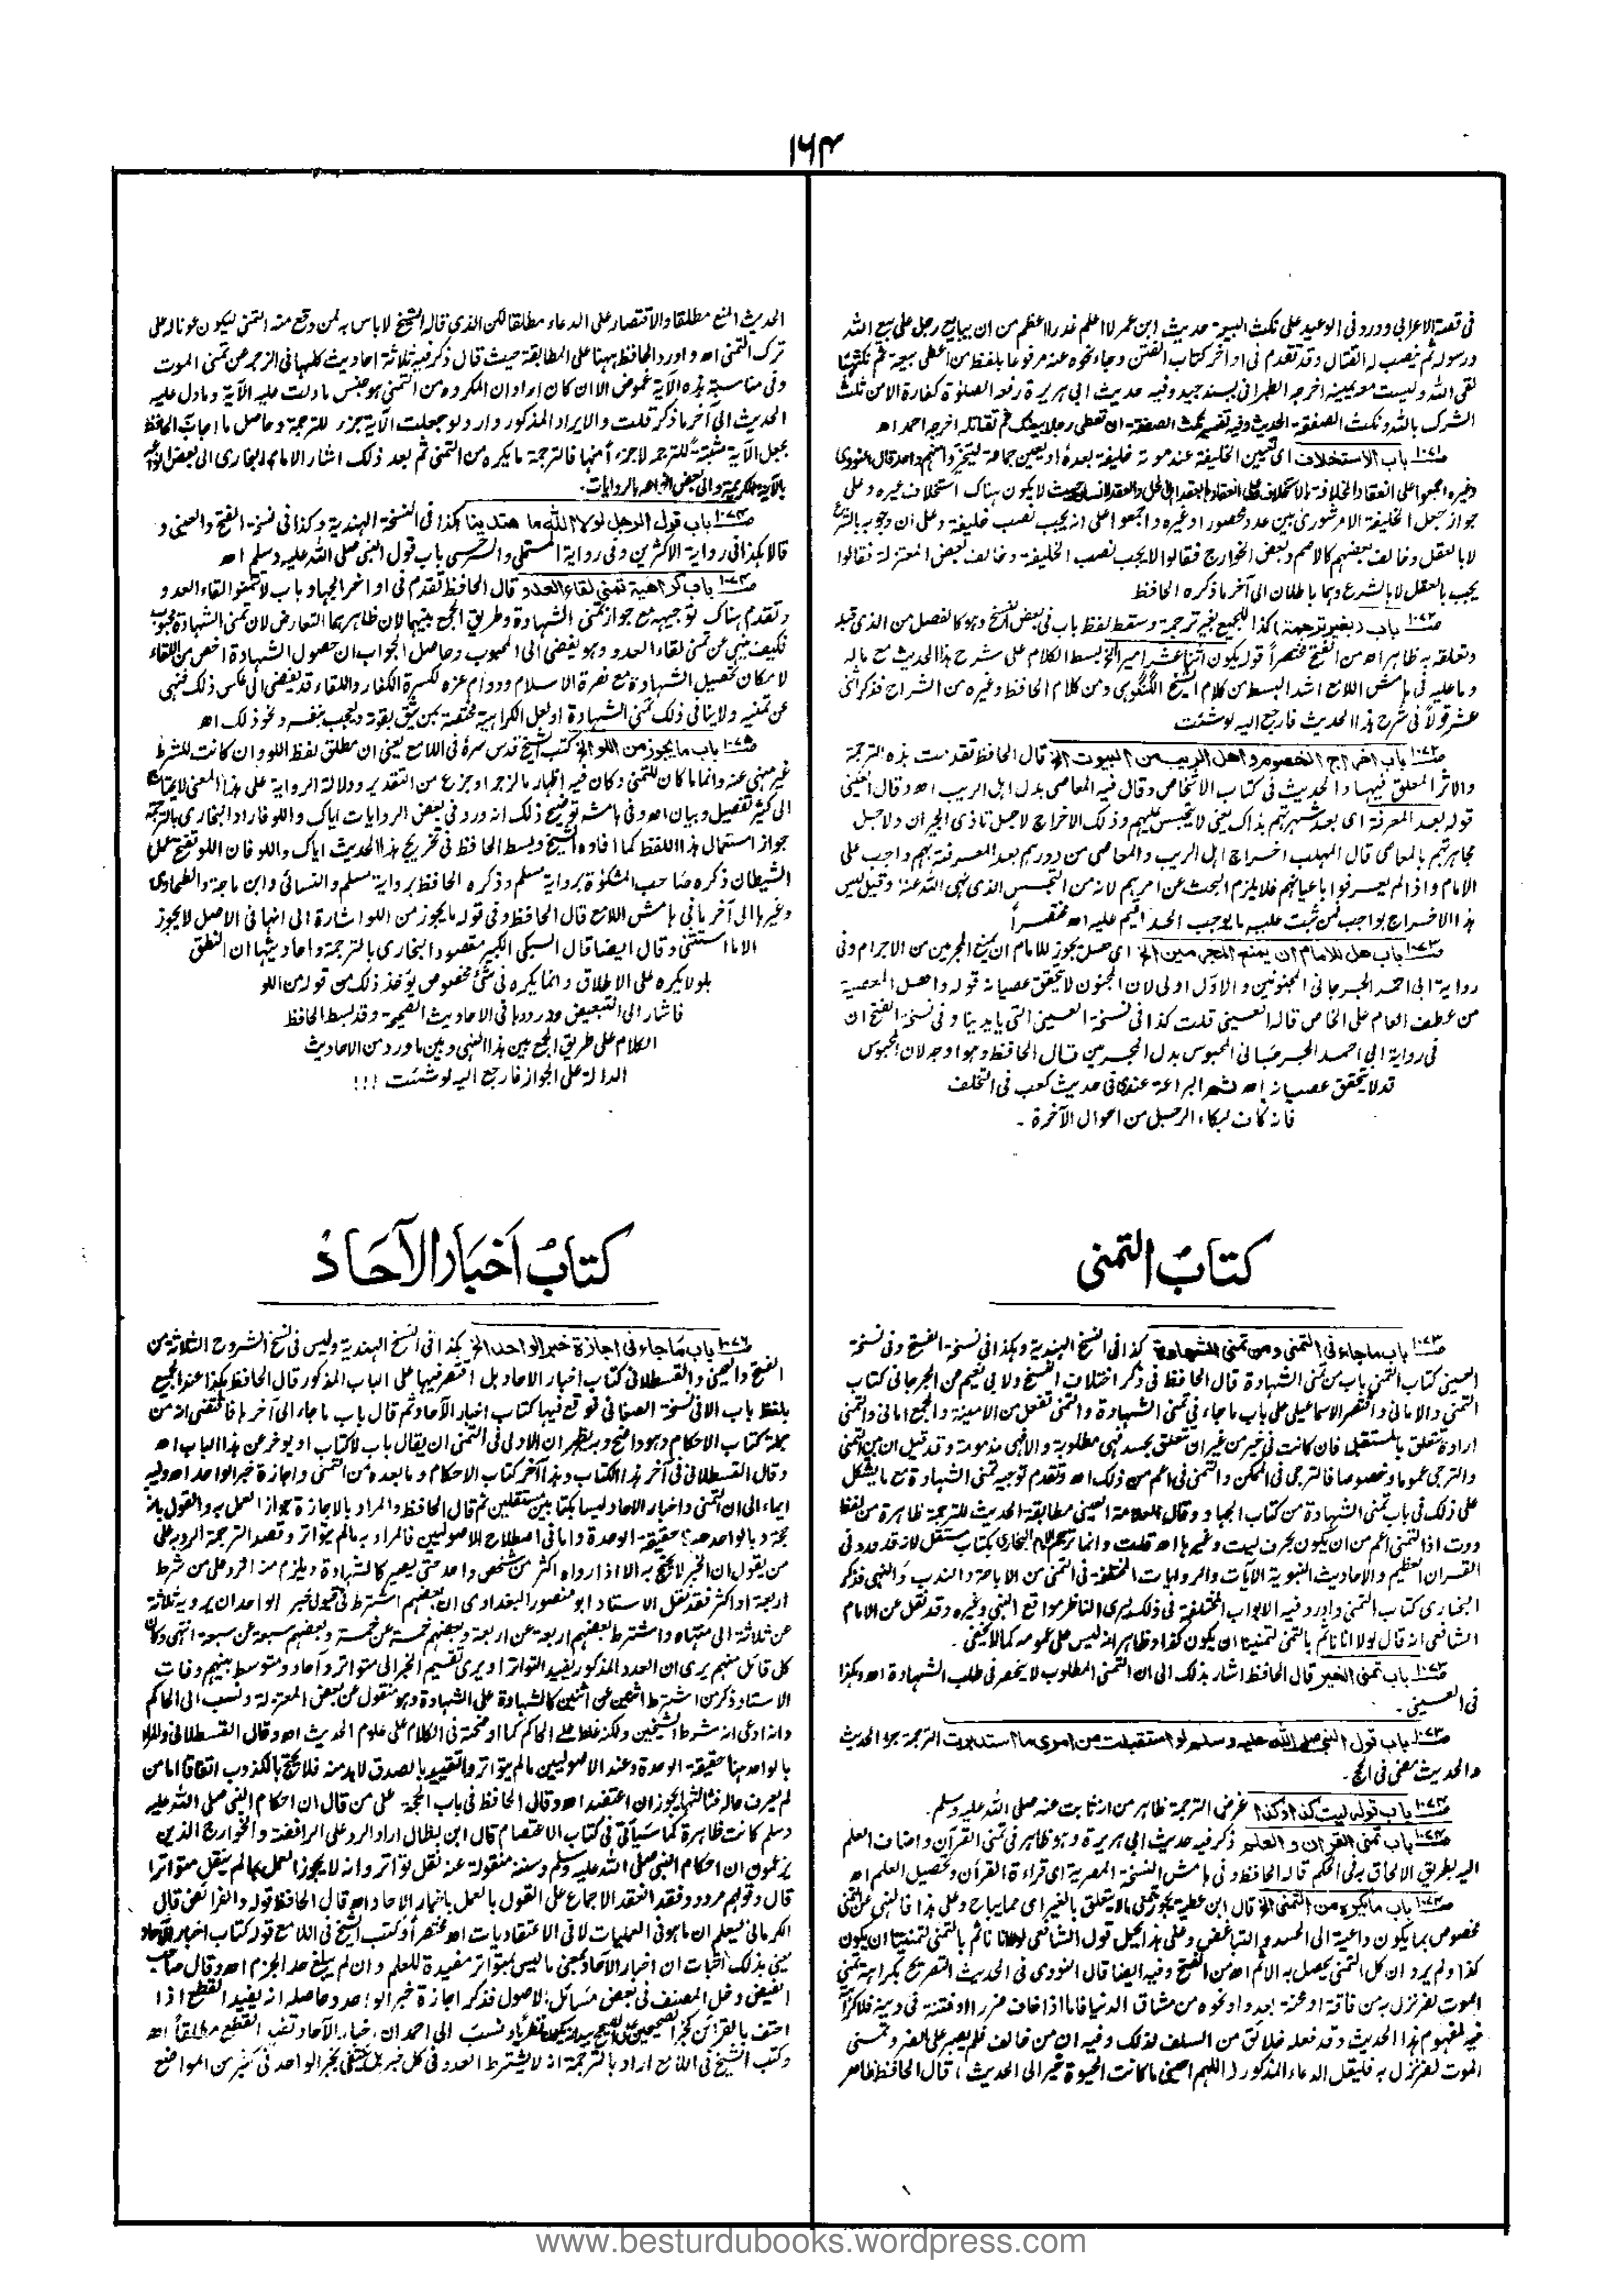 ١٦٤
في قصة الاعرابي وورد في الوعيد على نكث البيعة حديث ابن عمر لا اعلم غدرا اعظم من ان يبايع رجل على بيع الله
ورسوله ثم ينصب له القتال وقد تقدم في اواخر كتاب الفتن وجاء نحوه عنه مرفوعا بلفظ من اعطى بيعة ثم نكثها
لقي الله وليست معه يمينه اخرجه الطبراني بسند جيد وفيه حديث ابي هريرة رفعه الصلوة كفارة الا من ثلث
الشرك بالله ونكث الصفقة الحديث وفيه تفسير نكث الصفقة ان تعطي رجلا بيعتك ثم تقاتله اخرجه احمد اه
باب الاستخلاف اى تعيين الخليفة عند موته خليفة بعده او يعين جماعة ليتخيروا منهم واحدا قال النووى
وغيره اجمعوا على انعقاد الخلافة بالاستخلاف وعلى انعقادها بعقد اهل الحل والعقد لانسان حيث لا يكون هناك استخلاف غيره وعلى
جواز جعل الخليفة الامر شورى بين عدد محصور او غيره واجمعوا على انه يجب نصب خليفة وعلى ان وجوبه بالشرع
لا بالعقل وخالف بعضهم كالاصم وبعض الخوارج فقالوا لا يجب نصب الخليفة وخالف بعض المعتزلة فقالوا
يجب بالعقل لا بالشرع وهما باطلان الى آخر ما ذكره الحافظ
باب (بغير ترجمة) كذا للجميع بغير ترجمة وسقط لفظ باب في بعض النسخ وهو كالفصل من الذى قبله
وتعلقه به ظاهر اه من الفتح مختصراً قوله يكون اثنا عشر اميرا الخ بسط الكلام على شرح هذا الحديث مع ماله
وما عليه في هامش اللامع اشد البسط من كلام الشيخ الگنگوهي ومن كلام الحافظ وغيره من الشراح فذكر اثني
عشر قولاً في شرح هذا الحديث فارجع اليه لو شئت
باب اخراج الخصوم واهل الريب من البيوت الخ قال الحافظ تقدمت هذه الترجمة
والاثر المعلق فيها والحديث في كتاب الاشخاص وقال فيه المعاصي بدل اهل الريب اه وقال العيني
قوله بعد المعرفة اى بعد شهرتهم بذاك يعني لا يتجسس عليهم وذلك الاخراج لاجل تاذى الجيران ولاجل
مجاهرتهم بالمعاصي قال المهلب اخراج اهل الريب والمعاصي من دورهم بعد المعرفة بهم واجب على
الامام واذا لم يعرفوا باعيانهم فلا يلزم البحث عن امرهم لانه من التجسس الذى نهى الله عنه وقيل ليس
هذا الاخراج بواجب فمن ثبت عليه ما يوجب الحد اقيم عليه اه مختصراً
باب هل للامام ان يمنع المجرمين الخ اى هل يجوز للامام ان يمنع المجرمين من الاجرام وفى
رواية ابي احمد الجرجاني المجنونين والاول اولى لان المجنون لا يتحقق عصيانه قوله واهل المعصية
من عطف العام على الخاص قاله العيني قلت كذا في نسخة العيني التي بايدينا وفي نسخة الفتح ان
في رواية ابي احمد الجرجاني المحبوس بدل المجرمين قال الحافظ وهو اوجه لان المحبوس
قد لا يتحقق عصيانه اه ثم البراعة عندى في حديث كعب في التخلف
فانه كان لبكاء الرحيل من احوال الآخرة .
كتاب التمنى
باب ماجاء فى التمنى ومن تمنى الشهادة كذا في النسخ الهندية وهكذا في نسخة الفتح وفي نسخة
العيني كتاب التمني باب من تمنى الشهادة قال الحافظ في ذكر اختلاف النسخ ولابي نعيم عن الجرجاني كتاب
التمني والاماني واقتصر الاسماعيلي على باب ما جاء في تمنى الشهادة والتمني تفعل من الامنية والجمع اماني والتمني
ارادة تتعلق بالمستقبل فان كانت في خير من غير ان تتعلق بحسد فهي مطلوبة والا فهي مذمومة وقد قيل ان بين التمني
والترجي عموما وخصوصا فالترجي في الممكن والتمني في اعم من ذلك اه وتقدم توجيه تمنى الشهادة مع ما يشكل
على ذلك في باب تمنى الشهادة من كتاب الجهاد وقال العلامة العيني مطابقة الحديث للترجمة ظاهرة من لفظ
وددت اذ التمني اعم من ان يكون بحرف ليت وغيرها اه قلت وانما ترجم الامام البخارى بكتاب مستقل لانه قد ورد في
القرآن العظيم والاحاديث النبوية الآيات والروايات المختلفة في التمني من الاباحة والندب والنهي فذكر
البخارى كتاب التمني واورد فيه الابواب المختلفة في ذلك ليرى الناظر مواقع النهي وغيره وقد نقل عن الامام
الشافعي انه قال لولا انا ناثم بالتمني لتمنينا ان يكون كذا وظاهر انه ليس على عمومه كما لا يخفى .
باب تمنى الخير قال الحافظ اشار بذلك الى ان التمني المطلوب لا ينحصر في طلب الشهادة اه وهكذا
في العيني .
باب قول النبى صلى الله عليه وسلم لو استقبلت من امرى ما استدبرت الترجمة جزء الحديث
والحديث مضى في الحج .
باب قوله ليت كذا وكذا غرض الترجمة ظاهر من انه ثابت عنه صلى الله عليه وسلم.
باب تمنى القرآن والعلم ذكر فيه حديث ابي هريرة وهو ظاهر في تمنى القرآن واضاف العلم
اليه بطريق الالحاق به في الحكم قاله الحافظ وفي هامش النسخة المصرية اى قراءة القرآن وتحصيل العلم اه
باب مايكره من التمنى الخ قال ابن عطية يجوز تمني مالا يتعلق بالغير اى مما يباح وعلى هذا فالنهي عن التمني
مخصوص بما يكون داعية الى الحسد والتباغض وعلى هذا يحمل قول الشافعي لولا انا ناثم بالتمني لتمنينا ان يكون
كذا ولم يرد ان كل التمني يحصل به الاثم اه من الفتح وفيه ايضا قال النووى في الحديث التصريح بكراهة تمني
الموت لضر نزل به من فاقة او محنة بعدو او نحوه من مشاق الدنيا فاما اذا خاف ضررا او فتنة في دينه فلا كراهة
فيه لمفهوم هذا الحديث وقد فعله خلائق من السلف لذلك وفيه ان من خالف فلم يصبر على الضر وتمنى
الموت لضر نزل به فليقل الدعاء المذكور (اللهم احيني ما كانت الحيوة خيرا لي الحديث) قال الحافظ ظاهر
الحديث المنع مطلقا والاقتصار على الدعاء مطلقا لكن الذى قاله الشيخ لا باس به لمن وقع منه التمني ليكون عونا له على
ترك التمني اه واورد الحافظ ههنا على المطابقة حيث قال ذكر فيه ثلاثة احاديث كلها في الزجر عن تمنى الموت
وفي مناسبة هذه الآية غموض الا ان كان اراد ان المكروه من التمني هو جنس ما دلت عليه الآية وما دل عليه
الحديث الى آخر ما ذكر قلت والايراد المذكور وارد لو جعلت الآية جزء للترجمة وحاصل ما اجاب الحافظ
بجعل الآية مثبتة للترجمة لا جزءاً منها فالترجمة ما يكره من التمني ثم بعد ذلك اشار الامام البخارى الى بعض انواعه
بالآية الكريمة والى بعض انواعه بالروايات .
باب قول الرجل لولا الله ما هتدينا كذا في النسخة الهندية وكذا في نسخة الفتح والعيني و
قالا هكذا في رواية الاكثرين وفي رواية المستملي والسرخسي باب قول النبي صلى الله عليه وسلم اه
باب كراهية تمنى لقاء العدو قال الحافظ تقدم في اواخر الجهاد باب لا تتمنوا لقاء العدو و
وتقدم هناك توجيهه مع جواز تمني الشهادة وطريق الجمع بينهما لان ظاهرهما التعارض لان تمنى الشهادة محبوب
فكيف ينهى عن تمنى لقاء العدو وهو يفضي الى المحبوب وحاصل الجواب ان حصول الشهادة اخص من اللقاء
لامكان تحصيل الشهادة مع نصرة الاسلام ودوام عزه لكسرة الكفار واللقاء قد يفضي الى عكس ذلك فنهى
عن تمنيه ولا ينافي ذلك تمني الشهادة او لعل الكراهية مختصة بمن يثق بقوته ويعجب بنفسه ونحو ذلك اه
باب مايجوز من اللو الخ كتب الشيخ قدس سره في اللامع يعني ان مطلق لفظ اللو وان كانت للشرط
غير منهي عنه وانما ما كان للتمني وكان فيه اظهار مالزجر او جزع من التقدير ودلالة الرواية على هذا المعنى لا يحتاج
الى كثير تفصيل وبيان اه وفي هامشه توضيح ذلك انه ورد في بعض الروايات اياك واللو فاراد البخارى بالترجمة
جواز استعمال هذا اللفظ كما افاده الشيخ وبسط الحافظ في تخريج هذا الحديث اياك واللو فان اللو تفتح عمل
الشيطان ذكره صاحب المشكوة برواية مسلم وذكره الحافظ برواية مسلم والنسائي وابن ماجة والطحاوى
وغيرها الى آخر ما في هامش اللامع قال الحافظ وفي قوله ما يجوز من اللو اشارة الى انها في الاصل لا يجوز
الا ما استثنى وقال ايضا قال السبكي الكبير مقصود البخارى بالترجمة واحاديثها ان النطق
بلو لا يكره على الاطلاق وانما يكره في شئ مخصوص يؤخذ ذلك من قوله من اللو
فاشار الى التبعيض وورودها في الاحاديث الصحيحة وقد بسط الحافظ
الكلام على طريق الجمع بين هذا النهي وبين ما ورد من الاحاديث
الدالة على الجواز فارجع اليه لو شئت !!!
كتاب أخبار الآحاد
باب ماجاء فى اجازة خبر الواحد الخ هكذا في النسخ الهندية وليس في نسخ الشروح الثلاثة من
الفتح والعيني والقسطلاني كتاب اخبار الاحاد بل اقتصر فيها على الباب المذكور قال الحافظ هكذا عند الجميع
بلفظ باب الا في نسخة الصغاني فوقع فيها كتاب اخبار الآحاد ثم قال باب ما جاء الى آخرها فاقتضى انه من
جملة كتاب الاحكام وهو واضح وبه يظهر ان الاولى في التمني ان يقال باب لا كتاب او يؤخر عن هذا الباب اه
وقال القسطلاني في آخر هذا الكتاب وهذا آخر كتاب الاحكام وما بعده من التمني واجازة خبر الواحد اه وفيه
ايماء الى ان التمني واخبار الاحاد ليسا بكتابين مستقلين ثم قال الحافظ والمراد بالاجازة جواز العمل به والقول بانه
حجة وبالواحد هنا حقيقة الوحدة واما في اصطلاح الاصوليين فالمراد به مالم يتواتر وقصد الترجمة الرد به على
من يقول ان الخبر لا يحتج به الا اذا رواه اكثر من شخص واحد حتى يصير كالشهادة ويلزم منه الرد على من شرط
اربعة او اكثر فقد نقل الاستاد ابو منصور البغدادى ان بعضهم اشترط في قبول خبر الواحد ان يرويه ثلاثة
عن ثلاثة الى منتهاه واشترط بعضهم اربعة عن اربعة وبعضهم خمسة عن خمسة وبعضهم سبعة عن سبعة انتهى وكان
كل قائل منهم يرى ان العدد المذكور يفيد التواتر او يرى تقسيم الخبر الى متواتر وآحاد ومتوسط بينهما وفات
الاستاد ذكر من اشترط اثنين عن اثنين كالشهادة على الشهادة وهو منقول عن بعض المعتزلة ونسب الى الحاكم
وانه ادعى انه شرط الشيخين ولكنه غلط على الحاكم كما اوضحته في الكلام على علوم الحديث اه وقال القسطلاني والمراد
بالواحد هنا حقيقة الوحدة وعند الاصوليين مالم يتواتر والتقييد بالصدق لابد منه فلا يحتج بالكذوب اتفاقا اما من
لم يعرف حاله فثالثها يجوز ان اعتضد اه وقال الحافظ في باب الحجة على من قال ان احكام النبي صلى الله عليه
وسلم كانت ظاهرة كما سيأتي في كتاب الاعتصام قال ابن بطال اراد الرد على الرافضة والخوارج الذين
يزعمون ان احكام النبي صلى الله عليه وسلم وسننه منقولة عنه نقل تواتر وانه لا يجوز العمل بما لم ينقل متواترا
قال وقولهم مردود فقد انعقد الاجماع على القول بالعمل باخبار الاحاد اه قال الحافظ قوله والفرائض قال
الكرماني ليعلم ان ما هو في العمليات لا في الاعتقاديات اه مختصراً وكتب الشيخ في اللامع قوله كتاب اخبار الآحاد
يعني بذلك اثبات ان اخبار الآحاد بمعنى ما ليس بمتواتر مفيدة للعلم وان لم يبلغ حد الجزم اه وقال صاحب
الفيض دخل المصنف في بعض مسائل الاصول فذكر اجازة خبر الواحد وحاصله انه يفيد القطع اذا
احتف بالقرائن كخبر الصحيحين على الصحيح ونسب الى احمد ان اخبار الآحاد تفيد القطع مطلقاً اه
وكتب الشيخ في اللامع اراد بالترجمة انه لا يشترط العدد في كل خبر بل يكتفى بخبر الواحد في كثير من المواضع
www.besturdubooks.wordpress.com